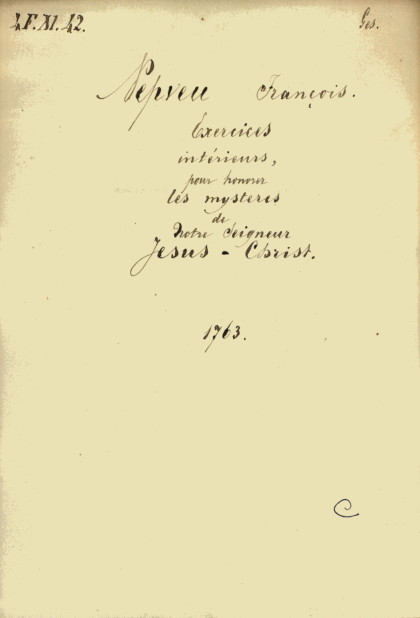 4.F.XI.42.
Ges.
Nepveu François.
Exercices
intérieurs,
pour honorer
les mysteres
de
Notre Seigneur
Jesus - Christ.
1763.
C